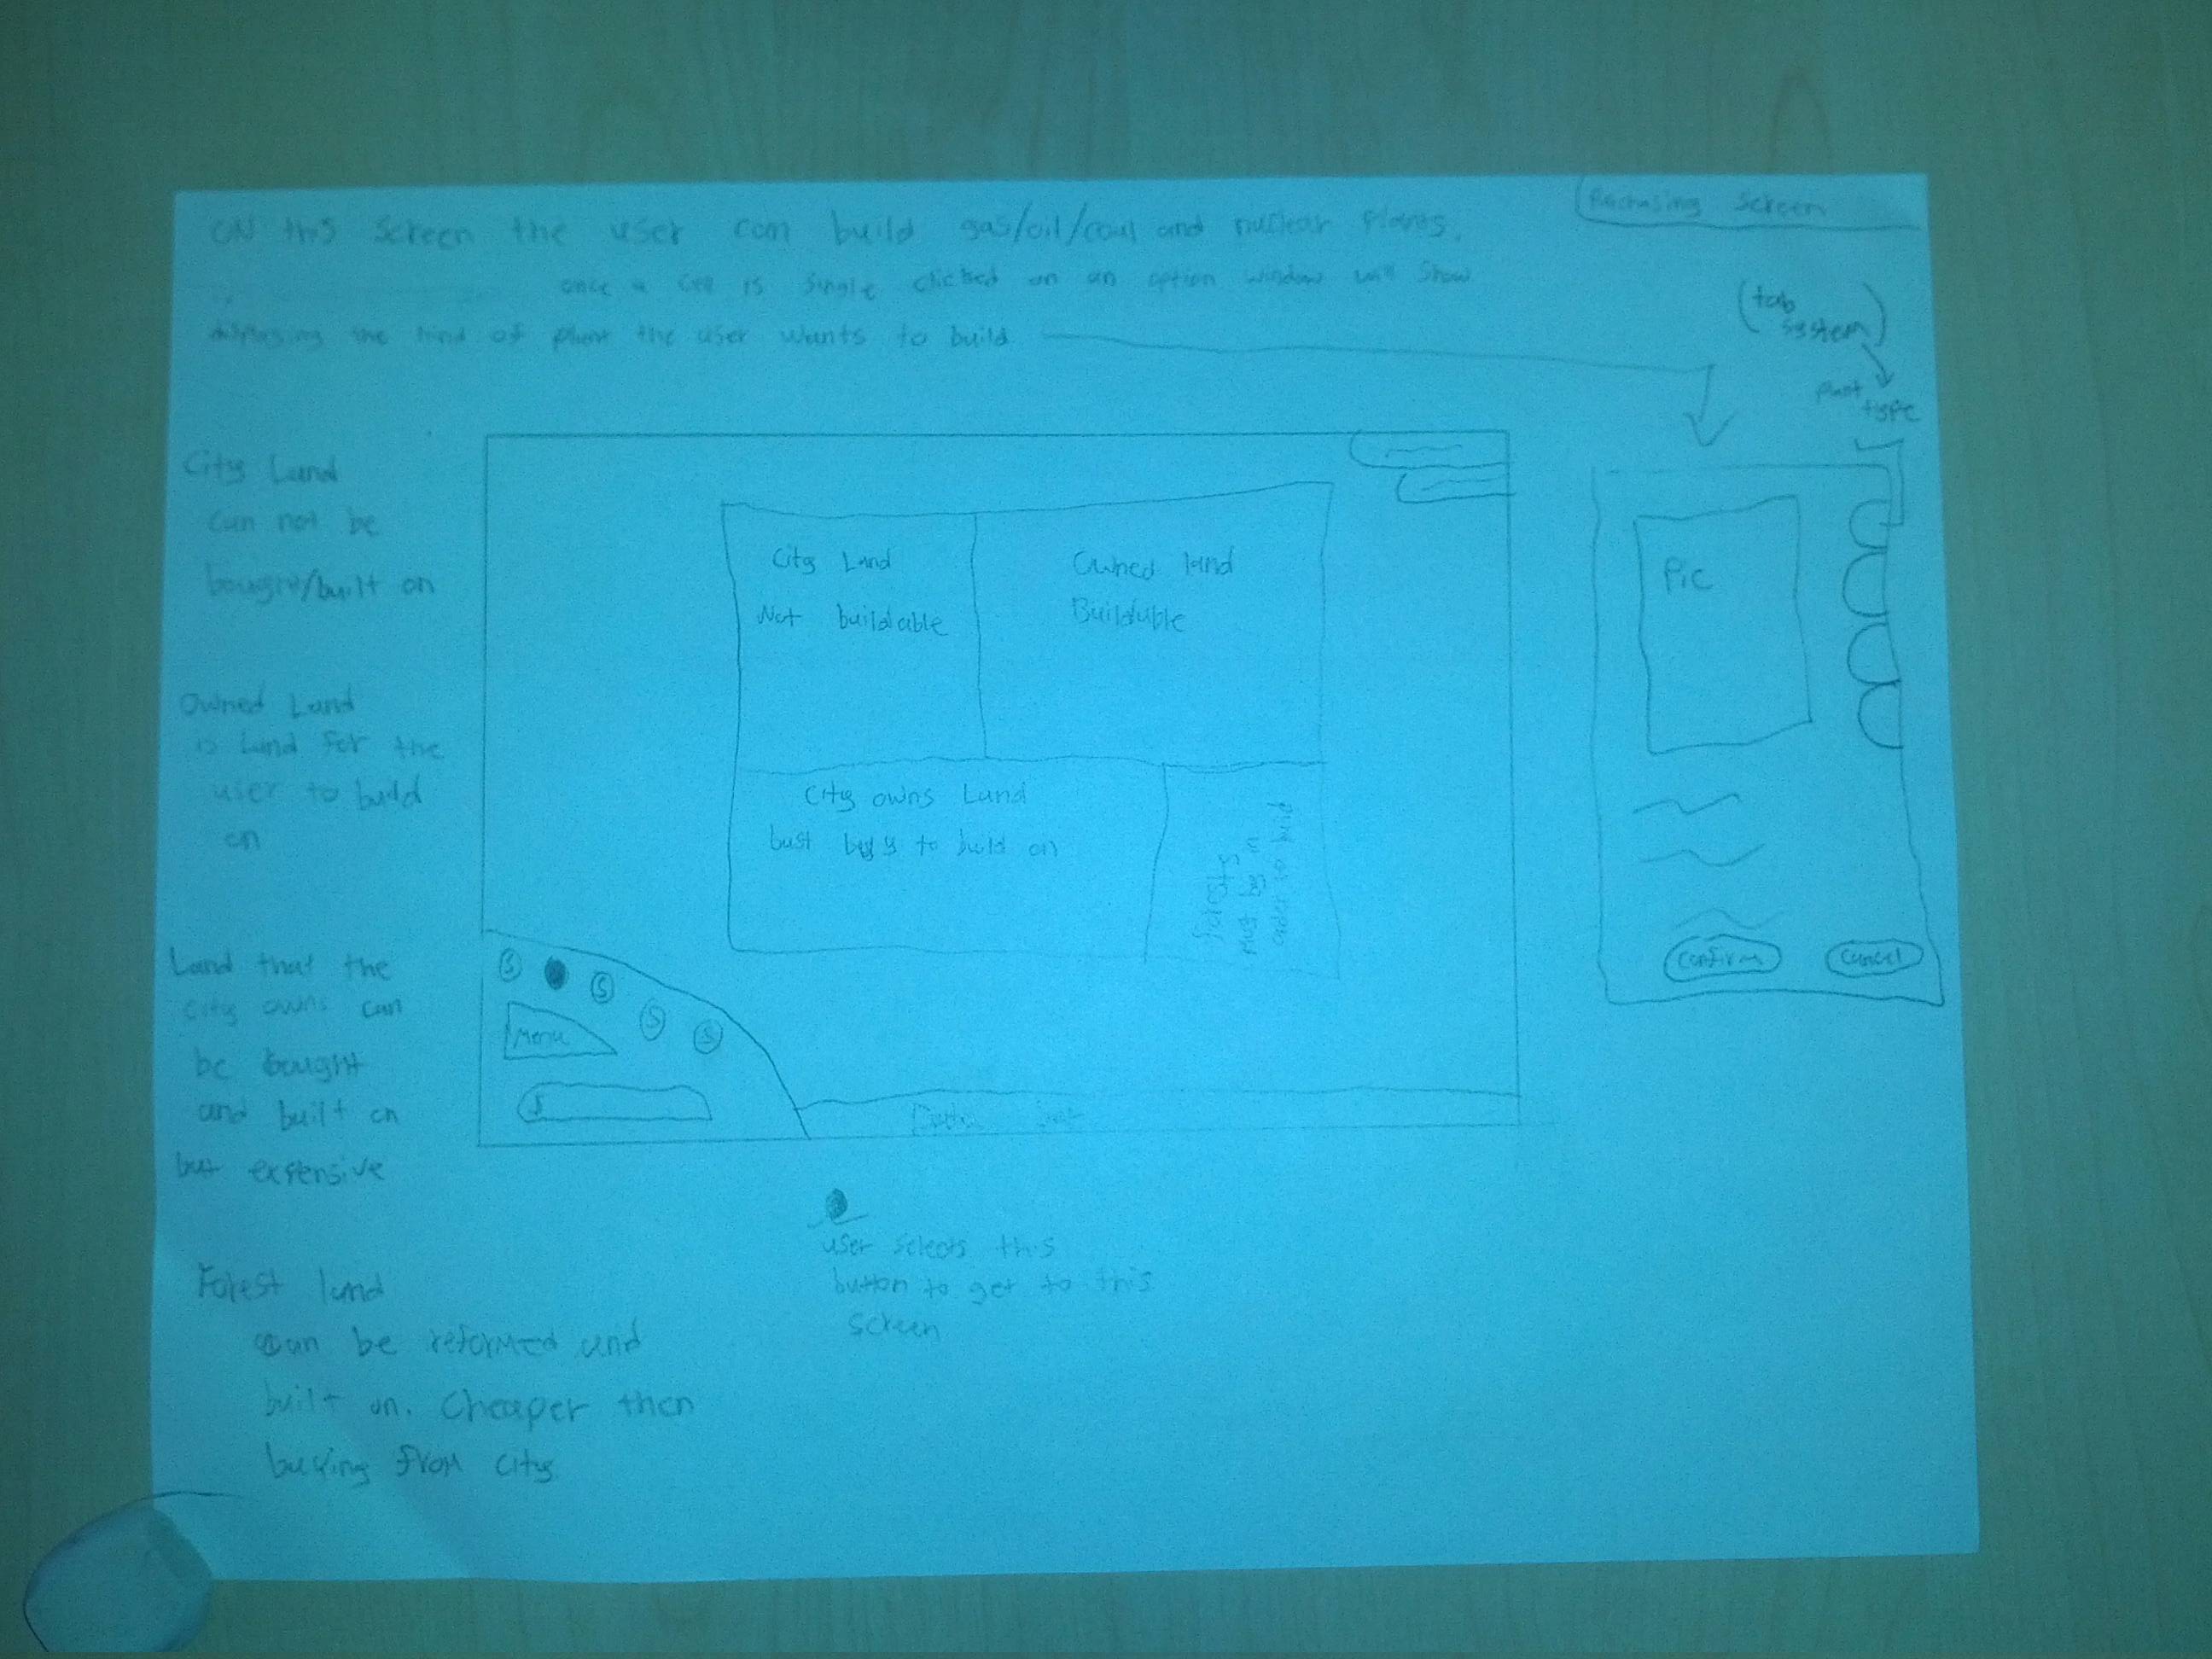 Purchasing Screen
ON this screen the user can build gas/oil/coal and nuclear plants.
once a cell is single clicked on an option window will show
displaying the kind of plant the user wants to build
(tab
system)
plant
type
City Land
can not be
bought/built on
Owned Land
is land for the
user to build
on
Land that the
city owns can
be bought
and built on
but expensive
Forest land
can be reformed and
built on. Cheaper then
buying from city
City Land
Not buildable
Owned land
Buildable
City owns Land
bust buy to build on
forests
must buy in
order to build
Pic
Confirm
Cancel
S
S
S
S
Menu
$
user selects this
button to get to this
screen